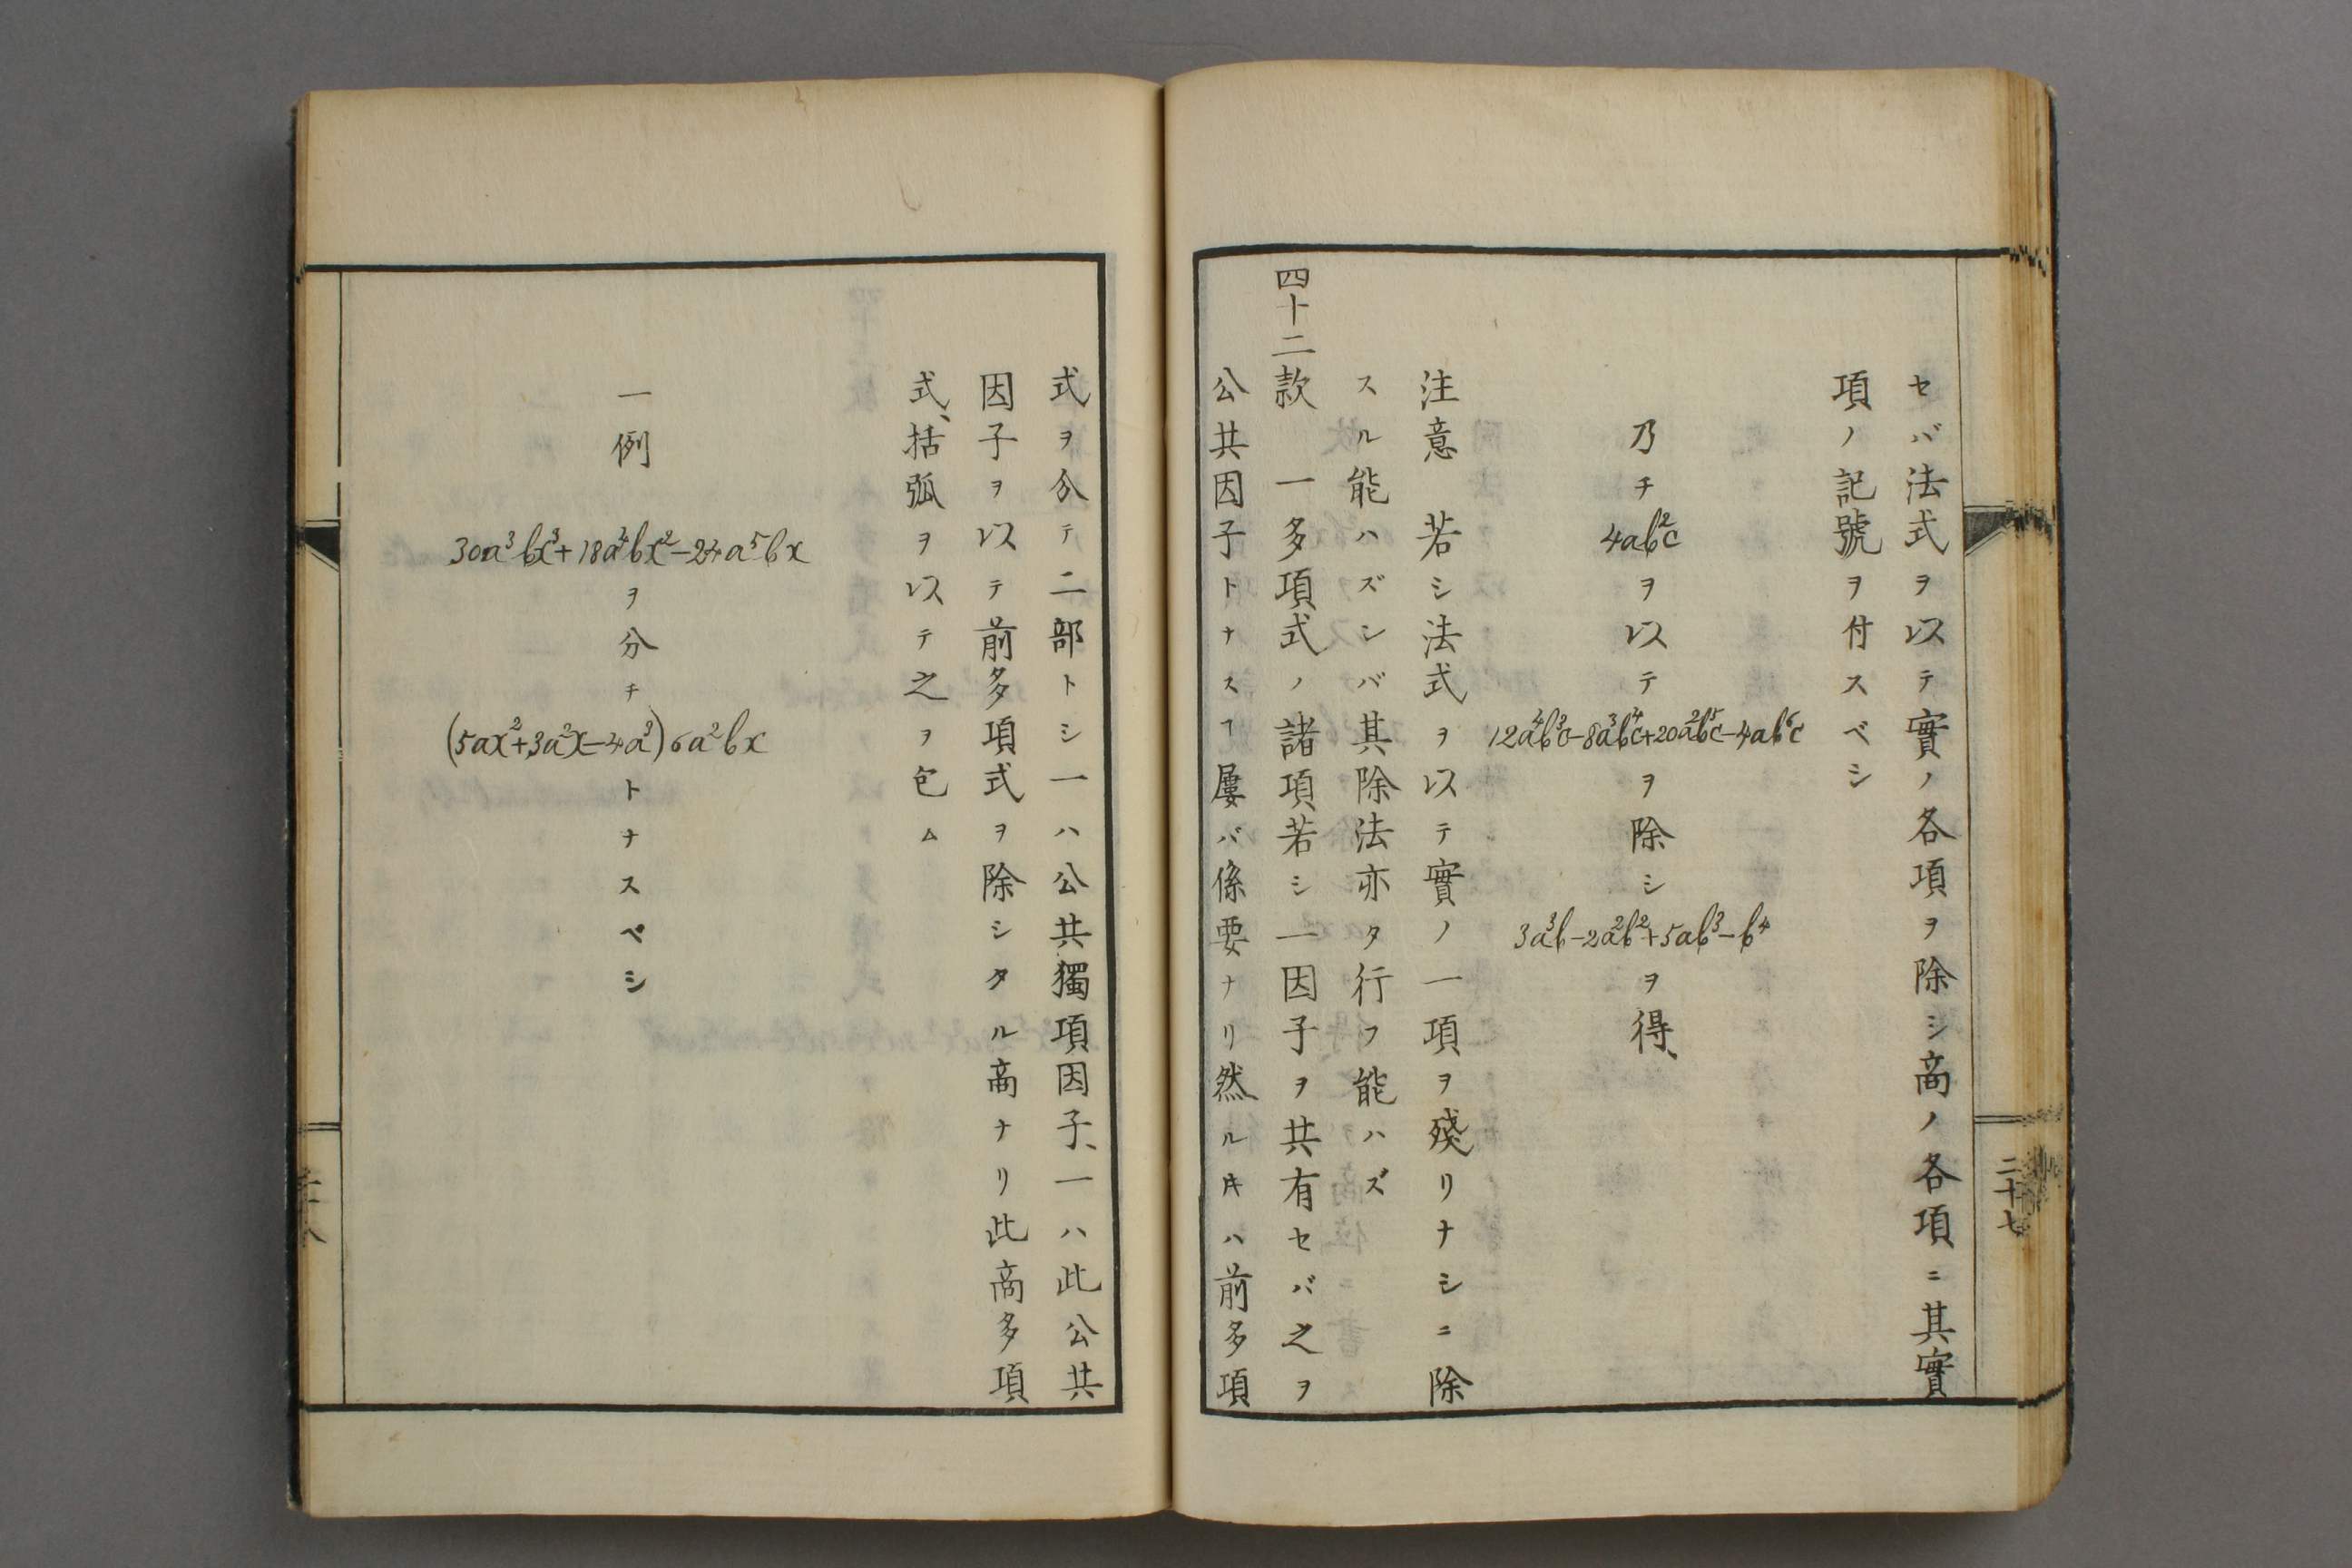 セバ法式ヲ以テ實ノ各項ヲ除シ商ノ各項ニ其實
項ノ記號ヲ付スベシ
乃チ
4ab²c
ヲ以テ
12a⁴b³c-8a³b⁴c+20a²b⁵c-4ab⁶c
ヲ除シ
3a³b-2a²b²+5ab³-b⁴
ヲ得、
注意 若シ法式ヲ以テ實ノ一項ヲ殘リナシニ除
スル能ハズンバ其除法亦タ行フ能ハズ
四十二款 一多項式ノ諸項若シ一因子ヲ共有セバ之ヲ
公共因子トナスヿ屢バ係要ナリ然ルキハ前多項
二十七
式ヲ分テ二部トシ一ハ公共獨項因子、一ハ此公共
因子ヲ以テ前多項式ヲ除シタル商ナリ此商多項
式、括弧ヲ以テ之ヲ包ム
一例
30a³bx³+18a⁴bx²-24a⁵bx
ヲ分チ
(5ax²+3a²x-4a³)6a²bx
トナスベシ